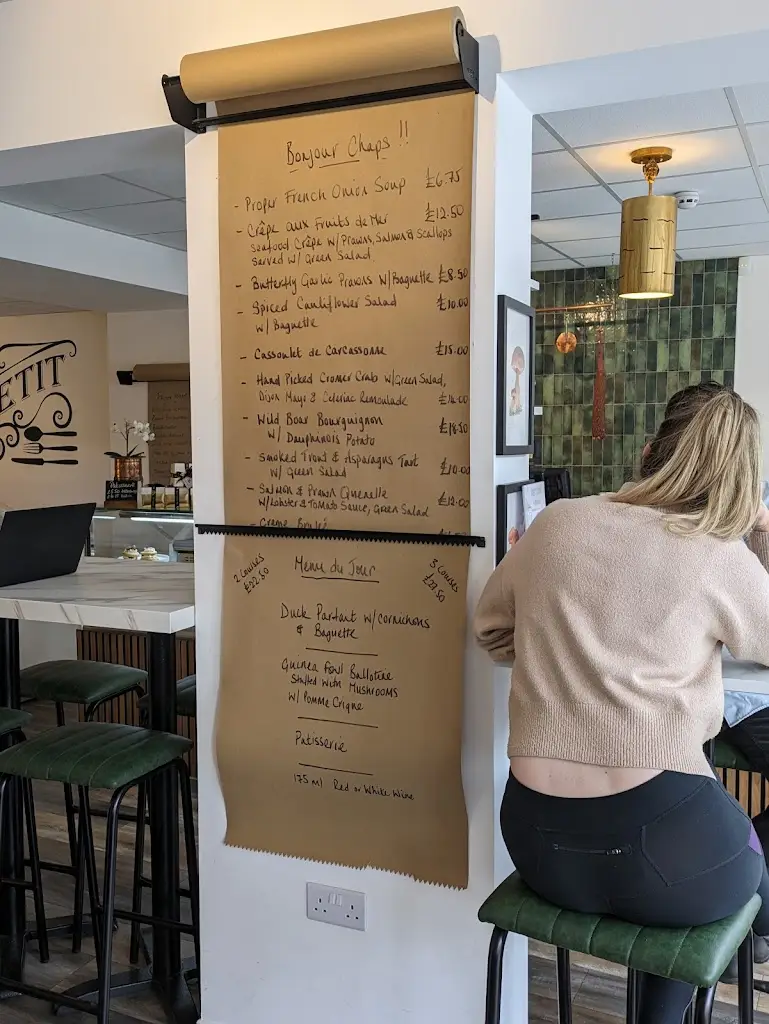 Bonjour Chaps !!
- Proper French Onion Soup £6.75
- Crêpe aux Fruits de Mer £12.50
Seafood Crêpe w/ Prawns, Salmon & Scallops
Served w/ Green Salad
- Butterfly Garlic Prawns w/ Baguette £8.50
- Spiced Cauliflower Salad £10.00
w/ Baguette
- Cassoulet de Carcassonne £15.00
- Hand Picked Cromer Crab w/ Green Salad,
Dijon Mayo & Celeriac Remoulade
- Wild Boar Bourguignon
w/ Dauphinois Potato
- Smoked Trout & Asparagus Tart £10.00
w/ Green Salad
- Salmon & Prawn Quenelle £12.00
w/ Lobster & Tomato Sauce, Green Salad
- Creme Brulé
2 Courses
£22.50
Menu du Jour
3 Courses
£27.50
Duck Parfait w/ Cornichons
& Baguette
Guinea Fowl Ballotine
Stuffed with Mushrooms
w/ Pomme Crique
Patisserie
175ml Red or White Wine
ETIT